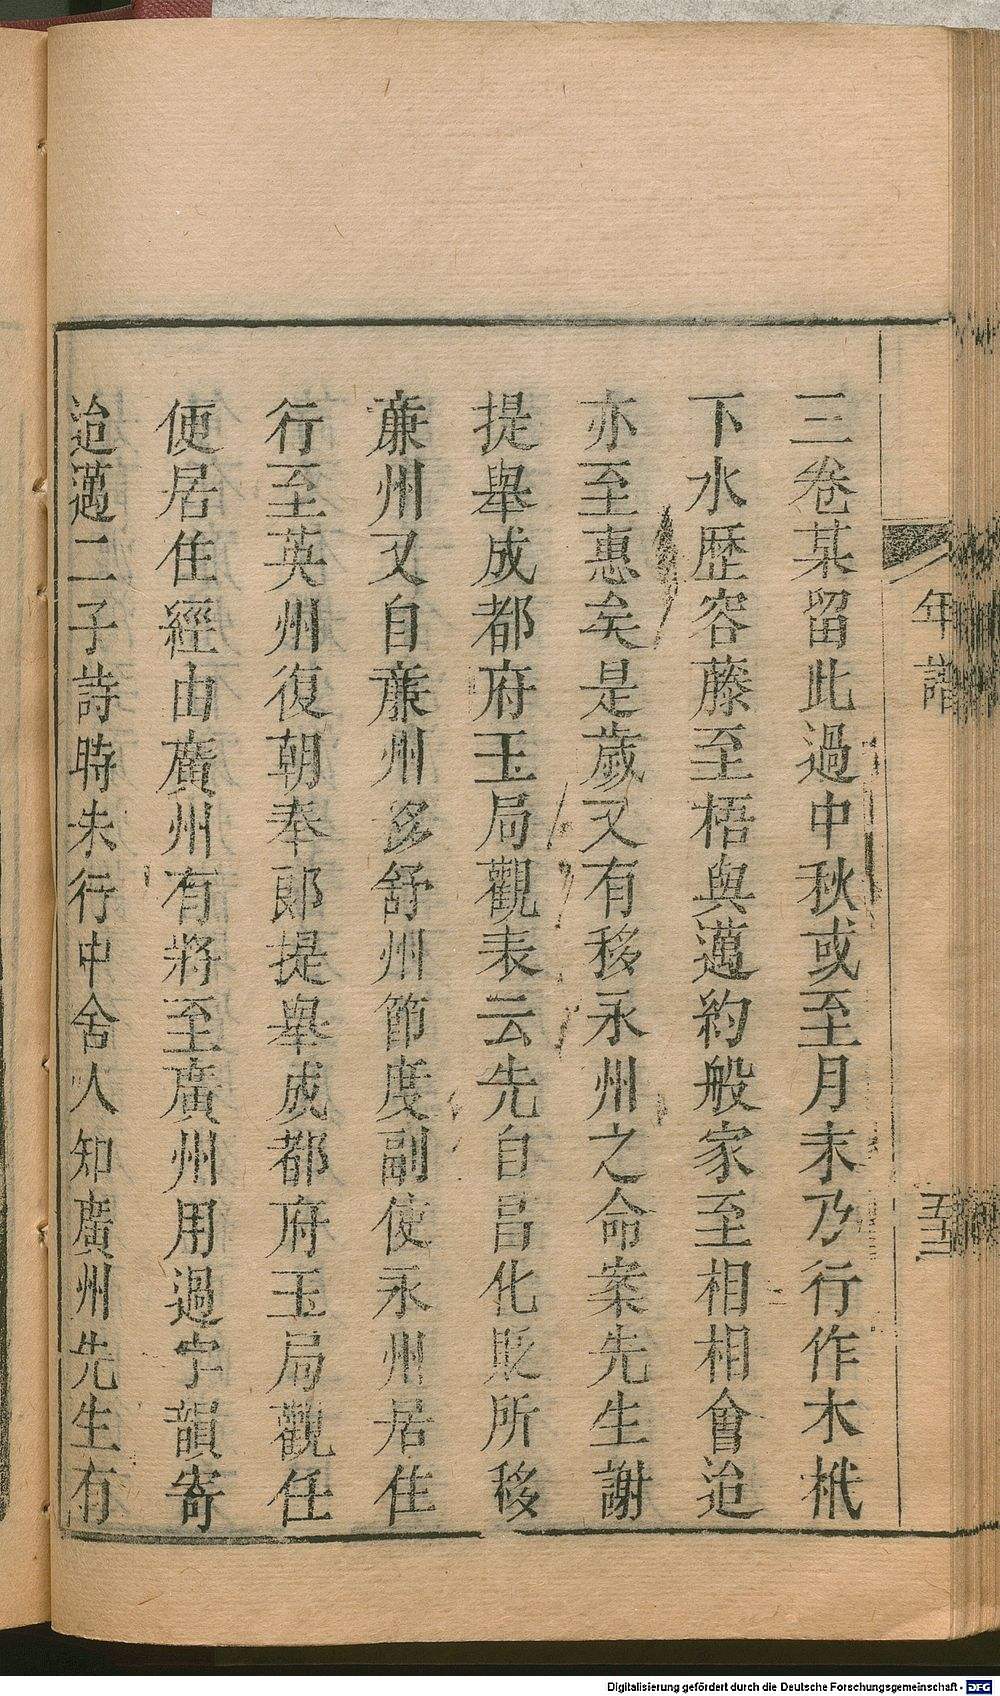 年譜
五三
三卷某留此過中秋或至月末乃行作木栰
下水歴容藤至梧與邁約般家至相相會迨
亦至惠矣是歲又有移永州之命案先生謝
提舉成都府玉局觀表云先自昌化貶所移
亷州又自亷州移舒州節度副使永州居住
行至英州復朝奉郎提舉成都府玉局觀任
便居住經由廣州有將至廣州用過字韻寄
迨邁二子詩時朱行中舍人知廣州先生有
Digitalisierung gefördert durch die Deutsche Forschungsgemeinschaft - DFG